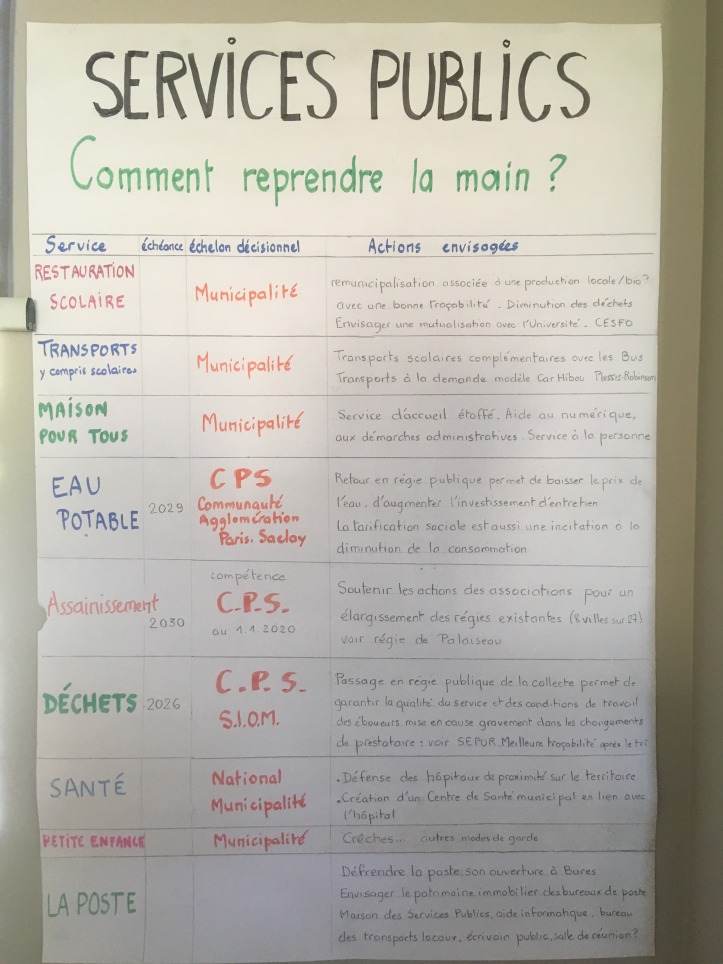 SERVICES PUBLICS
Comment reprendre la main ?
Service échéance échelon décisionnel Actions envisagées
RESTAURATION
SCOLAIRE
Municipalité
remunicipalisation associée à une production locale/bio?
avec une bonne traçabilité. Diminution des déchets
Envisager une mutualisation avec l'Université. CESFO
TRANSPORTS
y compris scolaires
Municipalité
Transports scolaires complémentaires avec les Bus
Transports à la demande modèle Car Hibou Plessis-Robinson
MAISON
POUR TOUS
Municipalité
Service d'accueil étoffé. Aide au numérique,
aux démarches administratives. Service à la personne
EAU
POTABLE
2029
CPS
Communauté
Agglomération
Paris. Saclay
Retour en régie publique permet de baisser le prix de
l'eau, d'augmenter l'investissement d'entretien
La tarification sociale est aussi une incitation à la
diminution de la consommation
Assainissement
2030
compétence
C.P.S.
au 1.1.2020
Soutenir les actions des associations pour un
élargissement des régies existantes (8 villes sur 27)
voir régie de Palaiseau
DÉCHETS
2026
C.P.S.
S.I.O.M.
Passage en régie publique de la collecte permet de
garantir la qualité du service et des conditions de travail
des éboueurs mise en cause gravement dans les changements
de prestataire : voir SEPUR. Meilleure traçabilité après le tri
SANTÉ
National
Municipalité
. Défense des hôpitaux de proximité sur le territoire
. Création d'un Centre de Santé municipal en lien avec
l'hôpital
PETITE ENFANCE
Municipalité
Crèches... autres modes de garde
LA POSTE
Défrendre la poste, son ouverture à Bures
Envisager le patrimoine immobilier des bureaux de poste
Maison des Services Publics, aide informatique, bureau
des transports locaux, écrivain public, salle de réunion?